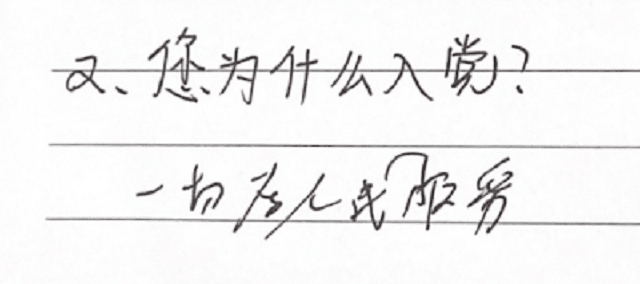 2、您为什么入党?
一切为人民服务